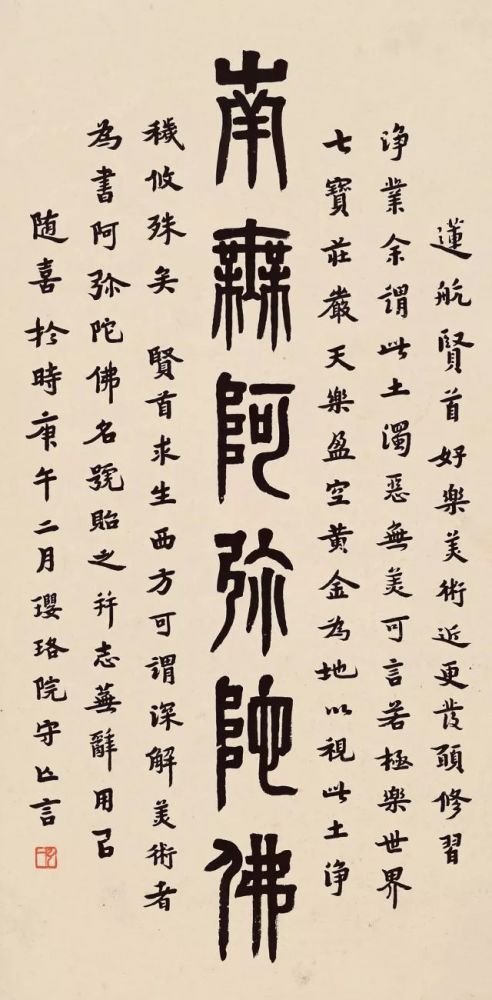 南無阿弥陀佛
蓮航賢首好樂美術近更發願修習
浄業余謂此土濁惡無美可言若極樂世界
七寶莊嚴天樂盈空黄金為地以視此土浄
穢攸殊矣　賢首求生西方可謂深解美術者
為書阿弥陀佛名號貽之并志蕪辭用㠯
随喜於時庚午二月瓔珞院守亾言